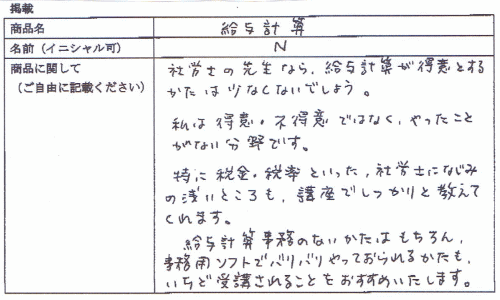 掲載
商品名 給与計算
名前（イニシャル可） N
商品に関して
（ご自由に記載ください）
社労士の先生なら、給与計算が得意とする
かたは少なくないでしょう。
私は得意・不得意ではなく、やったこと
がない分野です。
特に税金・税率といった、社労士になじみ
の浅いところも、講座でしっかりと教えて
くれます。
給与計算事務のないかたはもちろん、
事務用ソフトでバリバリやっておられるかたも、
いちど受講されることをおすすめいたします。